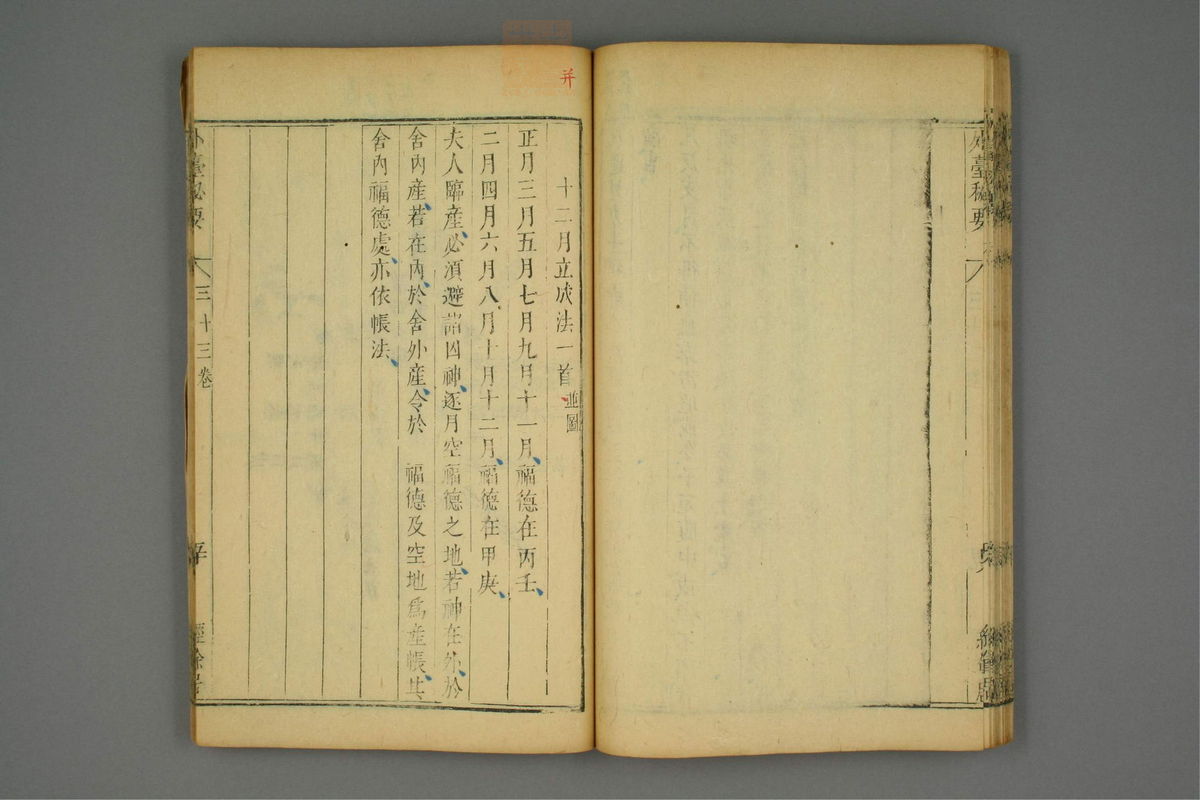 外臺秘要
十二月立成法一首並圖
正月三月五月七月九月十一月福德在丙壬
二月四月六月八月十月十二月福德在甲庚
夫人臨産必須避諸凶神逐月空福德之地若神在外於
舍内産若在内於舍外産令於 福德及空地爲産帳其
舍内福德處亦依帳法
外臺秘要
三十三卷
并